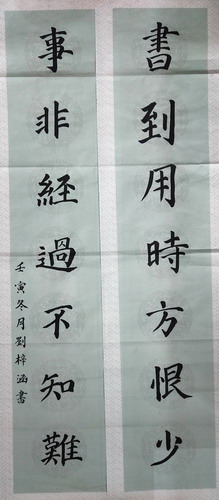 書到用時方恨少
事非經過不知難
壬寅冬月劉梓涵書